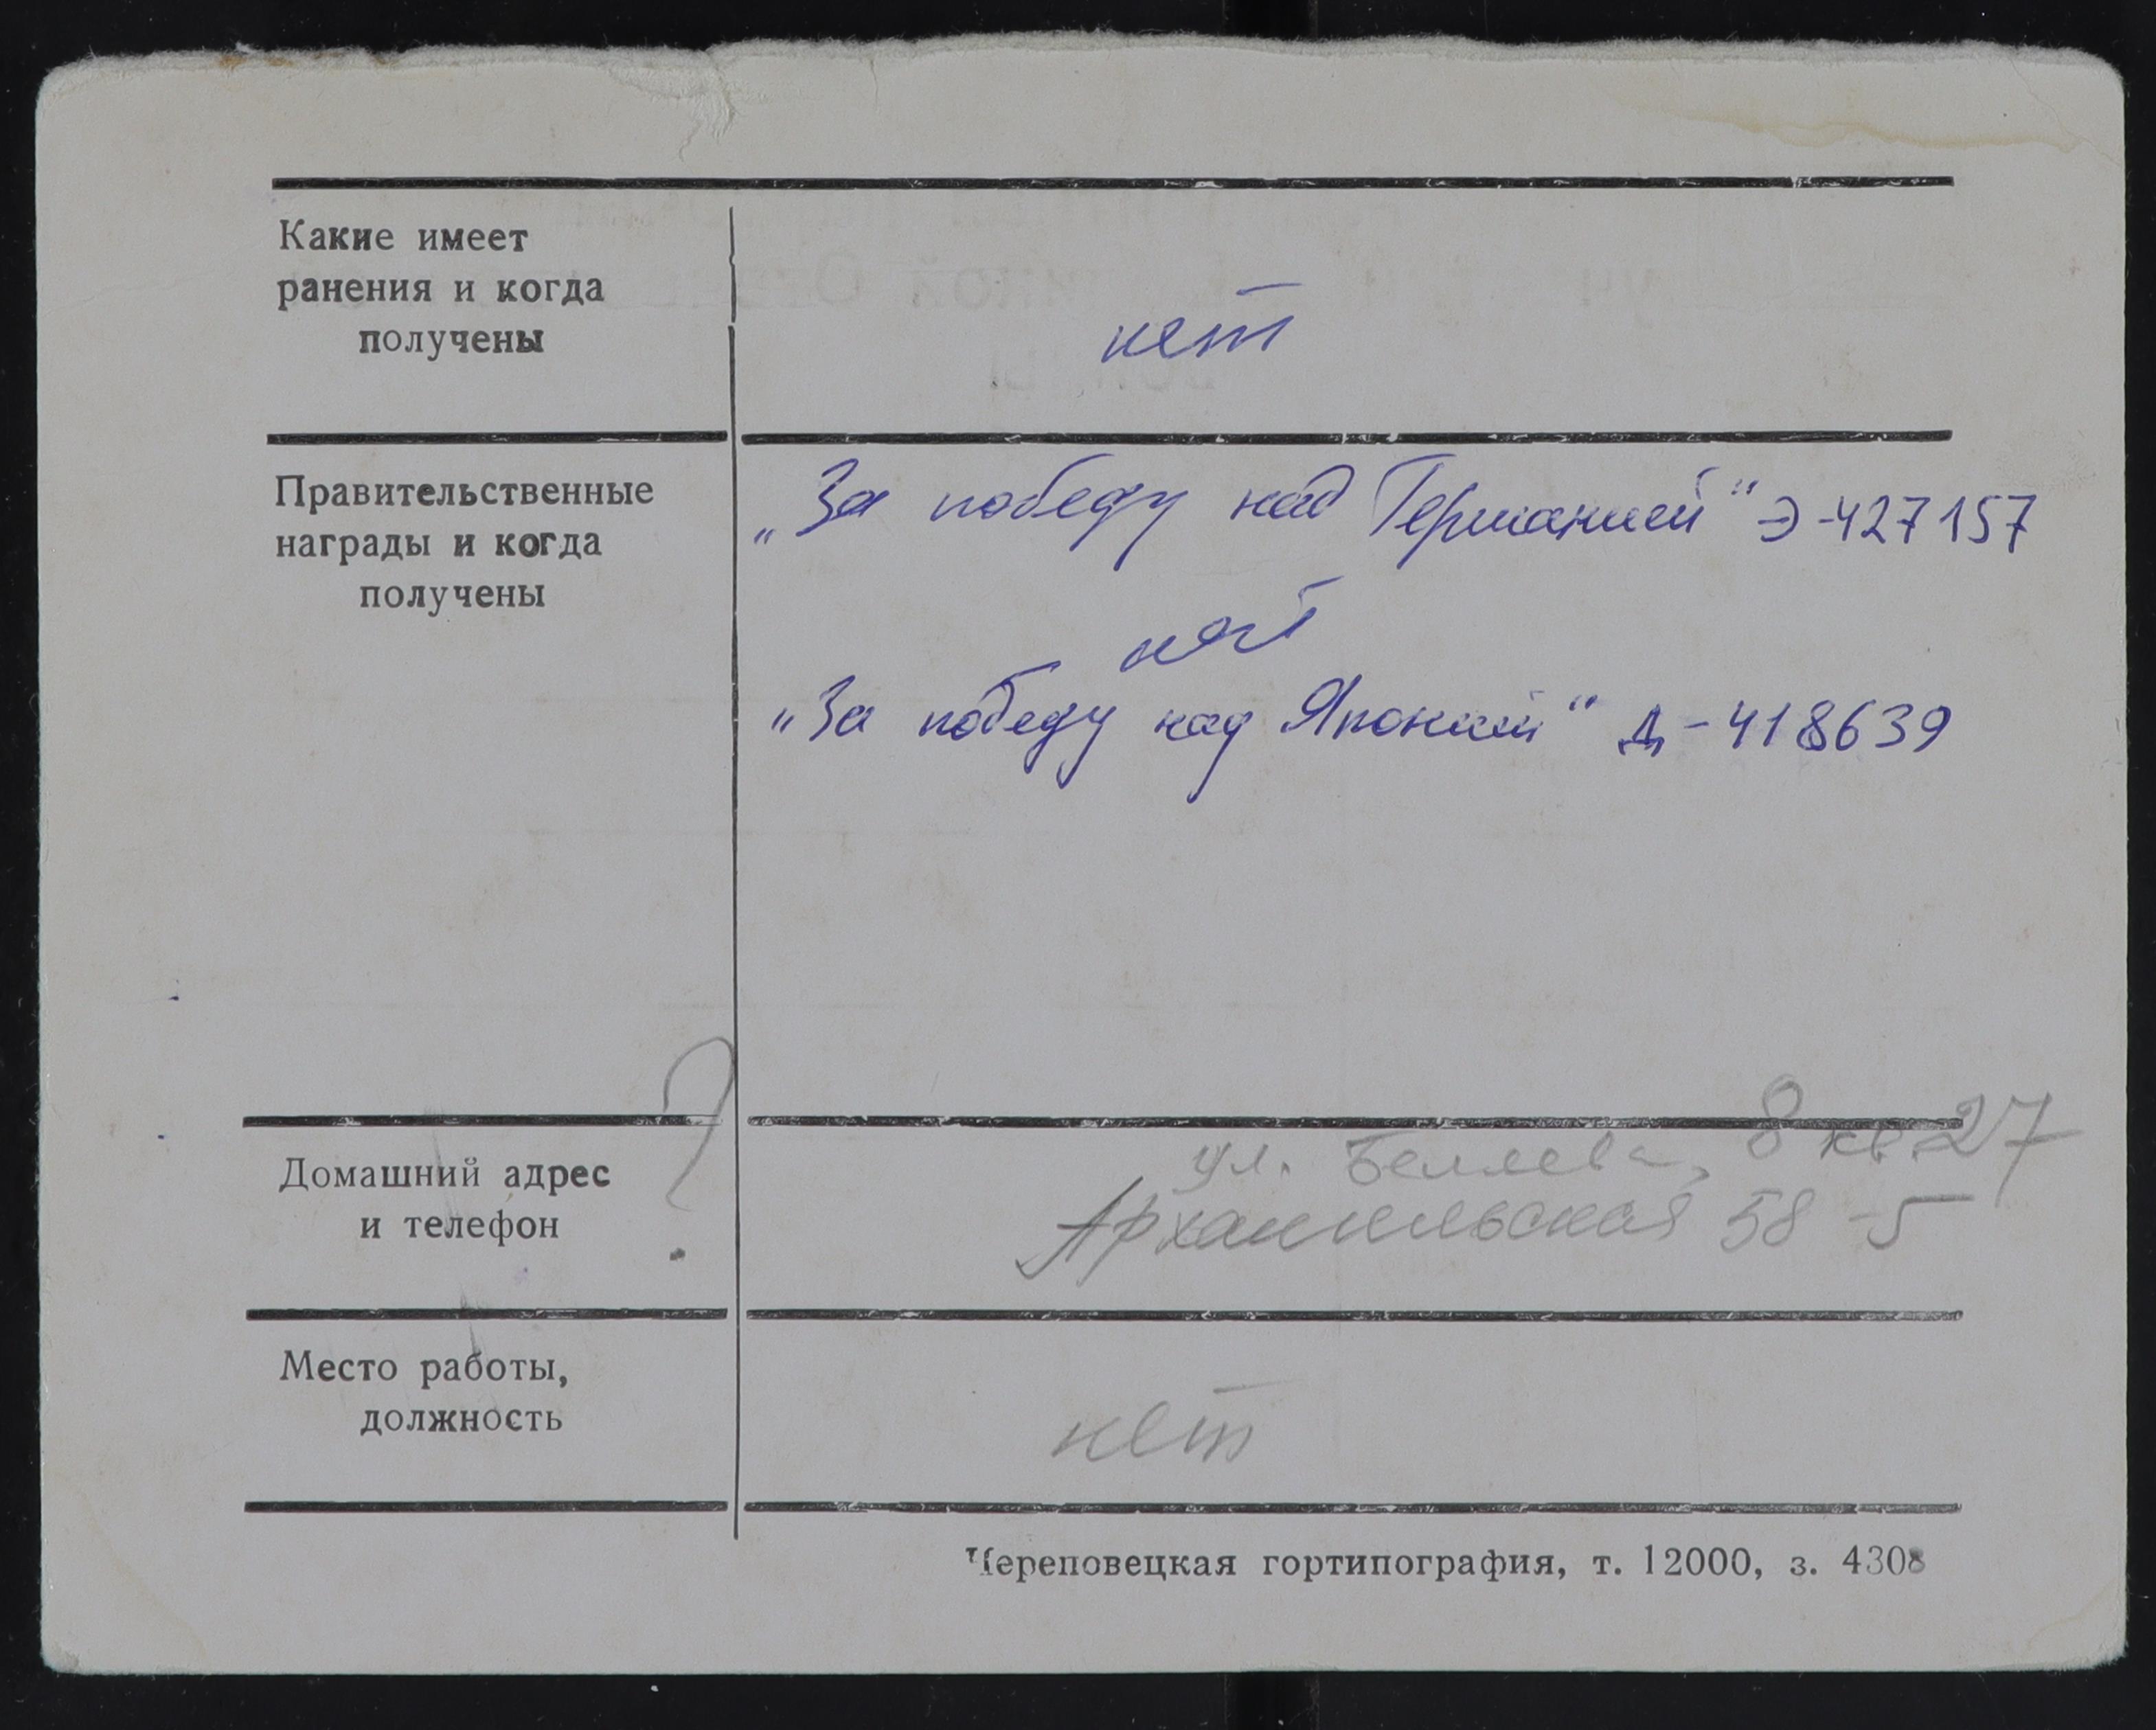 Какие имеет
ранения и когда
получены
нет
Правительственные
награды и когда
получены
„За победу над Германией“ Э-427157
нет
„За победу над Японией“ Д-418639
?
Домашний адрес
и телефон
ул. Беляева, 8 кв. 27
Архангельская 58-5
Место работы,
должность
нет
Череповецкая гортипография, т. 12000, з. 4308